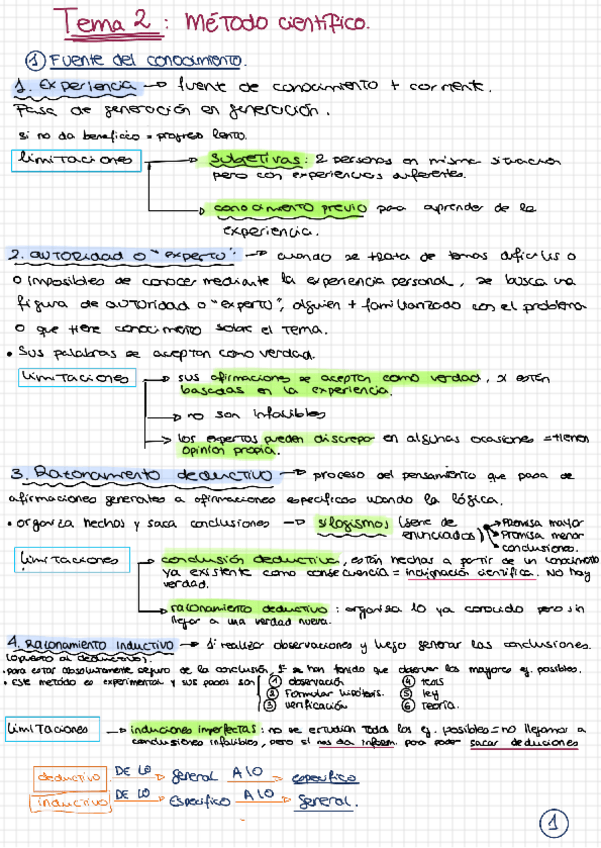 Tema 2: Método científico.
① Fuente del conocimiento.
1. Experiencia → fuente de conocimiento + corriente.
Pasa de generación en generación.
si no da beneficio = progreso lento.
limitaciones → subjetivas: 2 personas en misma situación
pero con experiencias diferentes.
→ conocimiento previo para aprender de la
experiencia.
2. autoridad o "experto": → cuando se trata de temas difíciles o
o imposibles de conocer mediante la experiencia personal, se busca una
figura de autoridad o "experto", alguien + familiarizado con el problema
o que tiene conocimiento sobre el tema.
• Sus palabras se aceptan como verdad.
limitaciones → sus afirmaciones se aceptan como verdad, si están
basadas en la experiencia.
→ no son infalibles
→ los expertos pueden discrepar en algunas ocasiones = tienen
opinión propia.
3. Razonamiento deductivo → proceso del pensamiento que pasa de
afirmaciones generales a afirmaciones específicas usando la lógica.
• organiza hechos y saca conclusiones → silogismos (serie de
enunciados) → Premisa mayor
→ Premisa menor
conclusiones.
limitaciones → conclusión deductiva, están hechas a partir de un conocimiento
ya existente como consecuencia = indignación científica. No hay
verdad.
→ razonamiento deductivo: organiza lo ya conocido pero sin
llegar a una verdad nueva.
4. Razonamiento inductivo → realizar observaciones y luego generar las conclusiones.
(opuesto al deductivo).
• para estar absolutamente seguro de la conclusión, se han tenido que observar los mayores ej. posibles.
• este método es experimental y sus pasos son ① observación ④ tesis
② Formular hipótesis. ⑤ ley
③ verificación ⑥ Teoría.
limitaciones → inducciones imperfectas: no se estudian todos los ej. posibles = no llegamos a
conclusiones infalibles, pero si nos da inform. para poder sacar deduciones
deductivo DE LO → general A LO → específico
inductivo DE LO → Específico A LO → general.
①